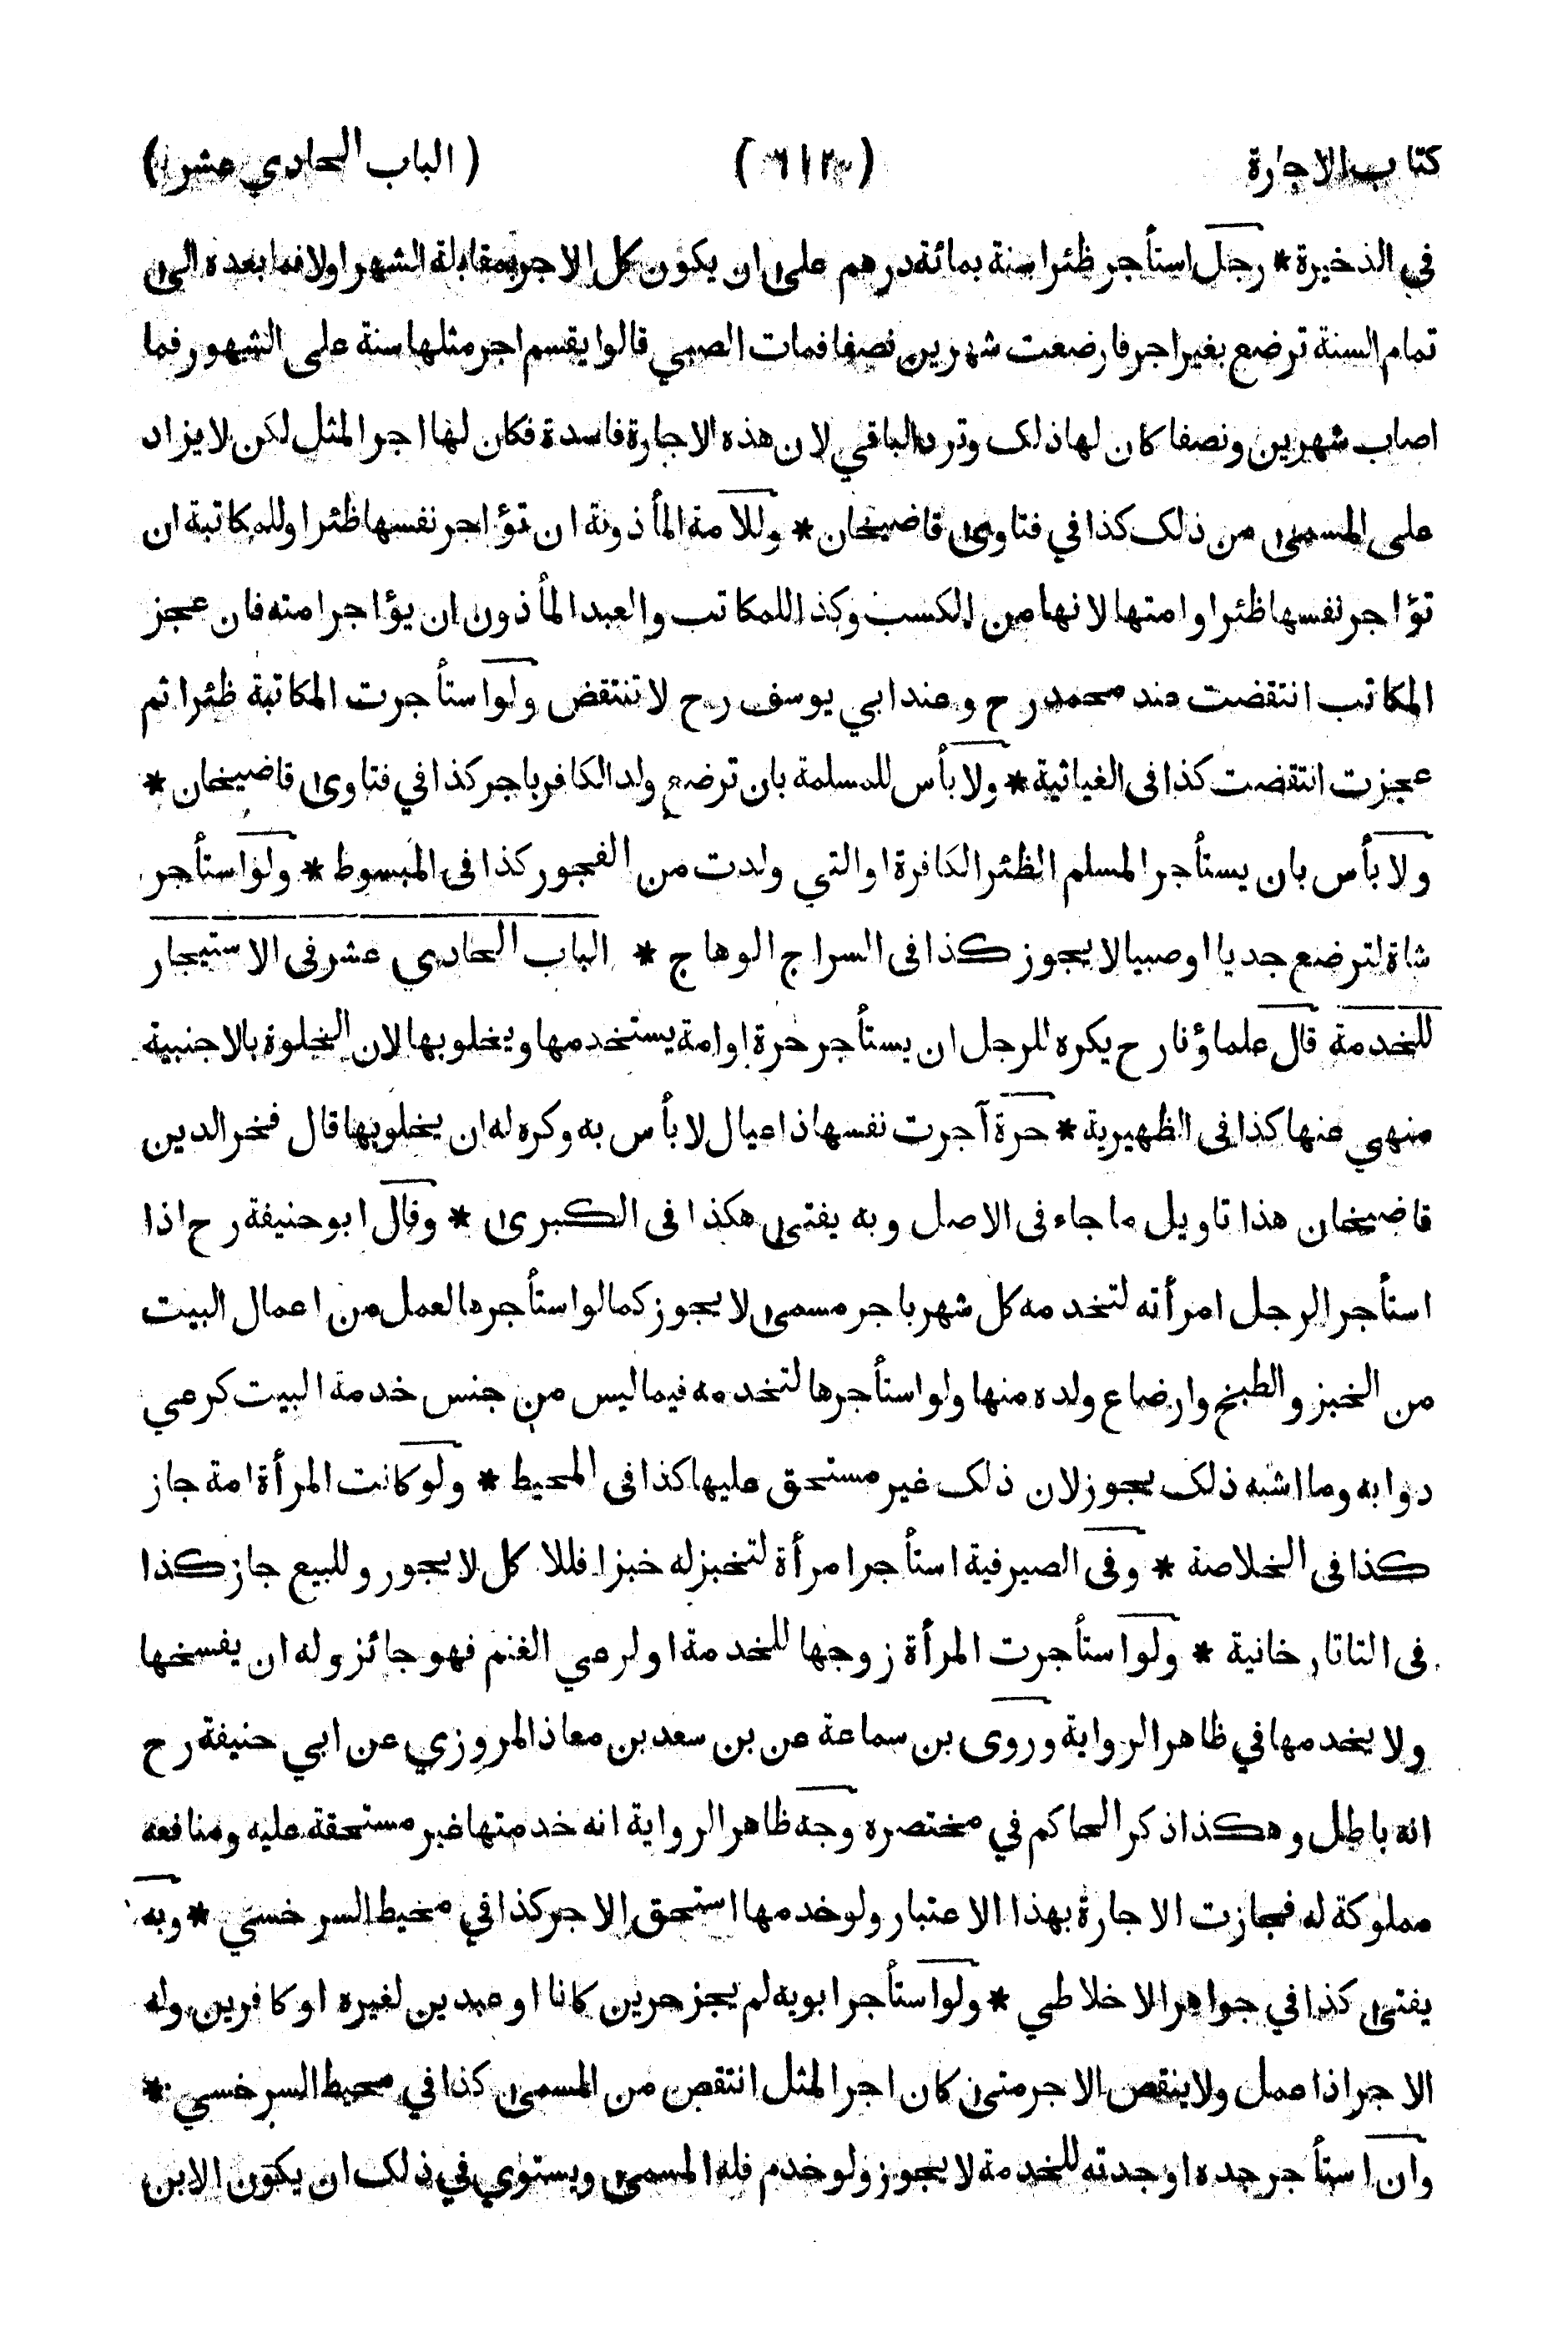 كتاب الاجارة ( ٦١٣ ) ( الباب الحادي عشر )
في الذخيرة * رجل استأجر ظئرا سنة بمائة درهم على ان يكون كل الاجر بمقابلة الشهر اولا فما بعده الى
تمام السنة ترضع بغير اجر فارضعت شهرين نصفا فمات الصبي قالوا يقسم اجر مثلها سنة على الشهور فما
اصاب شهرين ونصفا كان لها ذلك وترد الباقي لان هذه الاجارة فاسدة فكان لها اجر المثل لكن لا يزاد
على المسمى من ذلك كذا في فتاوى قاضيخان * وللامة المأذونة ان تؤاجر نفسها ظئرا وللمكاتبة ان
تؤاجر نفسها ظئرا وامتها لانها من الكسب وكذا للمكاتب والعبد المأذون ان يؤاجر امته فان عجز
المكاتب انتقضت عند محمد رح وعند ابي يوسف رح لا تنتقض ولو استأجرت المكاتبة ظئرا ثم
عجزت انتقضت كذا فى الغياثية * ولا بأس للمسلمة بان ترضع ولد الكافر باجر كذا في فتاوى قاضيخان *
ولا بأس بان يستأجر المسلم الظئر الكافرة او التي ولدت من الفجور كذا فى المبسوط * ولو استأجر
شاة لترضع جديا او صبيا لا يجوز كذا فى السراج الوهاج * الباب الحادي عشر فى الاستيجار
للخدمة قال علماؤنا رح يكره للرجل ان يستأجر حرة او امة يستخدمها ويخلو بها لان الخلوة بالاجنبية
منهي عنها كذا فى الظهيرية * حرة آجرت نفسها ذا عيال لا بأس به وكره له ان يخلو بها قال فخر الدين
قاضيخان هذا تاويل ما جاء فى الاصل وبه يفتى هكذا فى الكبرى * وقال ابو حنيفة رح اذا
استأجر الرجل امرأته لتخدمه كل شهر باجر مسمى لا يجوز كما لو استأجرها لعمل من اعمال البيت
من الخبز والطبخ وارضاع ولده منها ولو استأجرها لتخدمه فيما ليس من جنس خدمة البيت كرعي
دوابه وما اشبه ذلك يجوز لان ذلك غير مستحق عليها كذا فى المحيط * ولو كانت المرأة امة جاز
كذا فى الخلاصة * وفى الصيرفية استأجر امرأة لتخبز له خبزا فللا كل لا يجور وللبيع جاز كذا
فى التاتار خانية * ولو استأجرت المرأة زوجها للخدمة او لرعي الغنم فهو جائز وله ان يفسخها
ولا يخدمها في ظاهر الرواية وروى بن سماعة عن بن سعد بن معاذ المروزي عن ابي حنيفة رح
انه باطل وهكذا ذكر الحاكم في مختصره وجه ظاهر الرواية انه خدمتها غير مستحقة عليه ومنافعه
مملوكة له فجازت الاجارة بهذا الاعتبار ولو خدمها استحق الاجر كذا في محيط السرخسي * وبه
يفتى كذا في جواهر الاخلاطي * ولو استأجر ابويه لم يجز حرين كانا او عبدين لغيره او كافرين وله
الاجر اذا عمل ولا ينقص الاجر متى كان اجر المثل انتقص من المسمى كذا في محيط السرخسي *
وان استأجر جده او جدته للخدمة لا يجوز ولو خدم فله المسمى ويستوي في ذلك ان يكون الابن